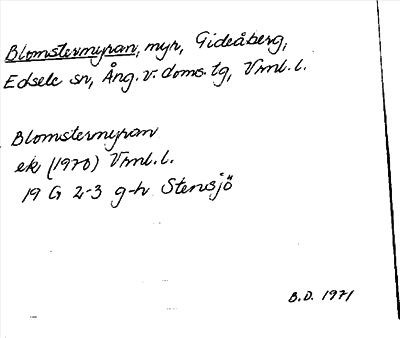 Blomstermyran, myr, Gideåberg,
Edsele sn, Ång. v. doms. tg, Vrml. l.
Blomstermyran
ek (1970) Vrml. l.
19 G 2-3 g-h Stensjö
B.D. 1971